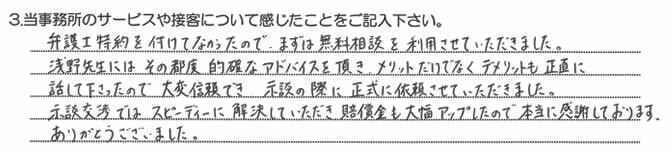 3.当事務所のサービスや接客について感じたことをご記入下さい。
弁護士特約を付けてなかったので、まずは無料相談を利用させていただきました。
浅野先生にはその都度 的確なアドバイスを頂き メリットだけでなくデメリットも正直に
話して下さったので 大変信頼でき 示談の際に正式に依頼させていただきました。
示談交渉では スピーディーに解決していただき 賠償金も大幅アップしたので本当に感謝しております。
ありがとうございました。